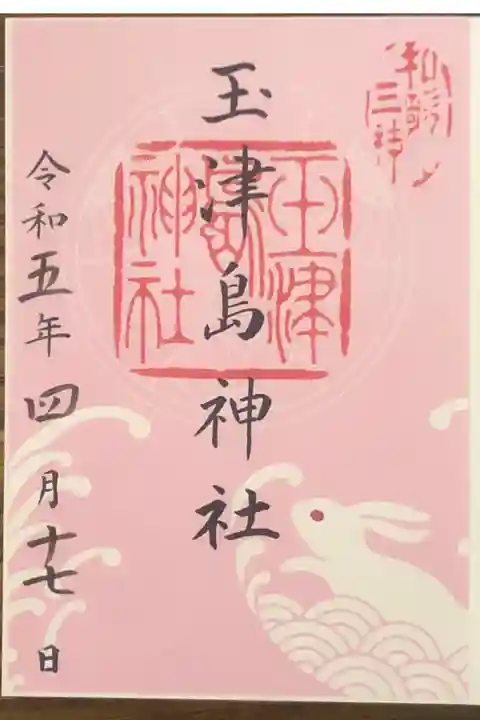 和歌三神
玉津島神社
玉津島神社
令和五年四月十七日